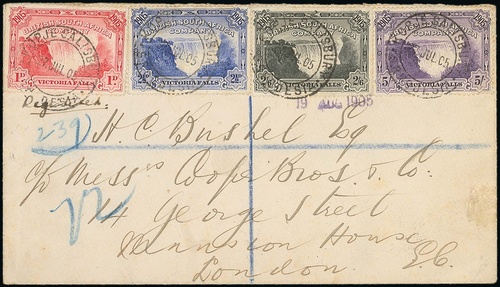 1905 BRITISH SOUTH AFRICA COMPANY 1905
1D VICTORIA FALLS 1D
1905 BRITISH SOUTH AFRICA COMPANY 1905
2½D VICTORIA FALLS 2½D
1905 BRITISH SOUTH AFRICA COMPANY 1905
2/6 VICTORIA FALLS 2/6
1905 BRITISH SOUTH AFRICA COMPANY 1905
5/- VICTORIA FALLS 5/-
JUL 05
Registered.
19 AUG 1905
239
H. C. Bushel Esq
c/o Messrs Cooper Bros. & Co.
14 George Street
Mansion House
London. E.C.